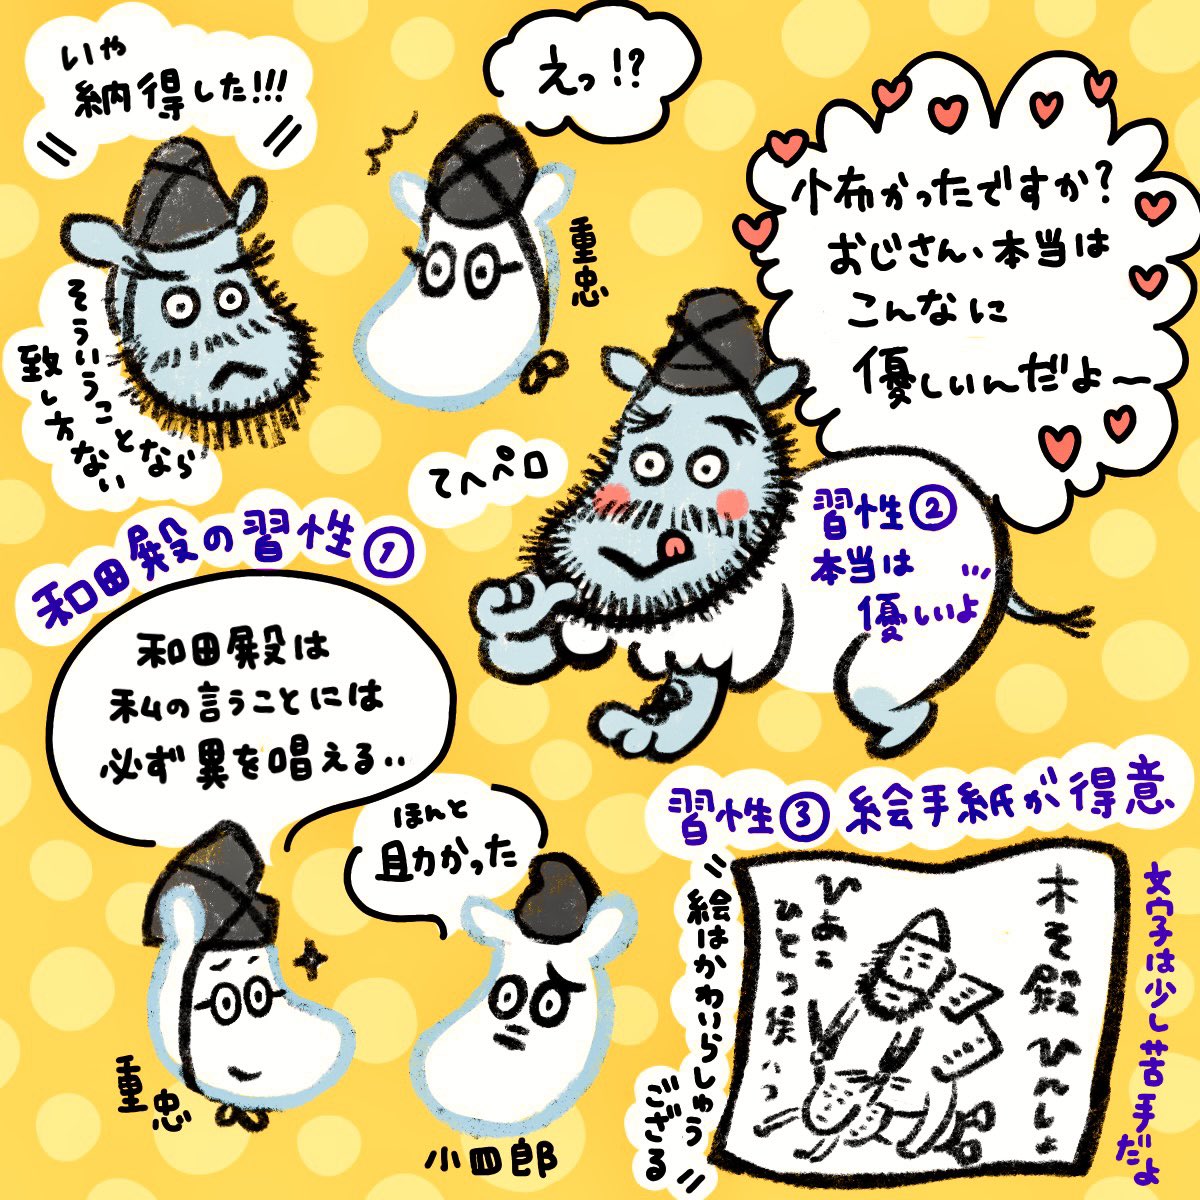 いや
納得した!!!
そういうことなら
致し方ない
えっ!?
重忠
小布かったですか?
おじさん、本当は
こんなに
優しいんだよ〜
てへペロ
習性②
本当は
優しいよ
和田殿の習性①
和田殿は
私の言うことには
必ず異を唱える‥
重忠
ほんと
助かった
小四郎
習性③絵手紙が得意
木そ殿
ひよこ
ひとつ
女字は少し苦手だよ
絵はかわいらしゅう
ござる